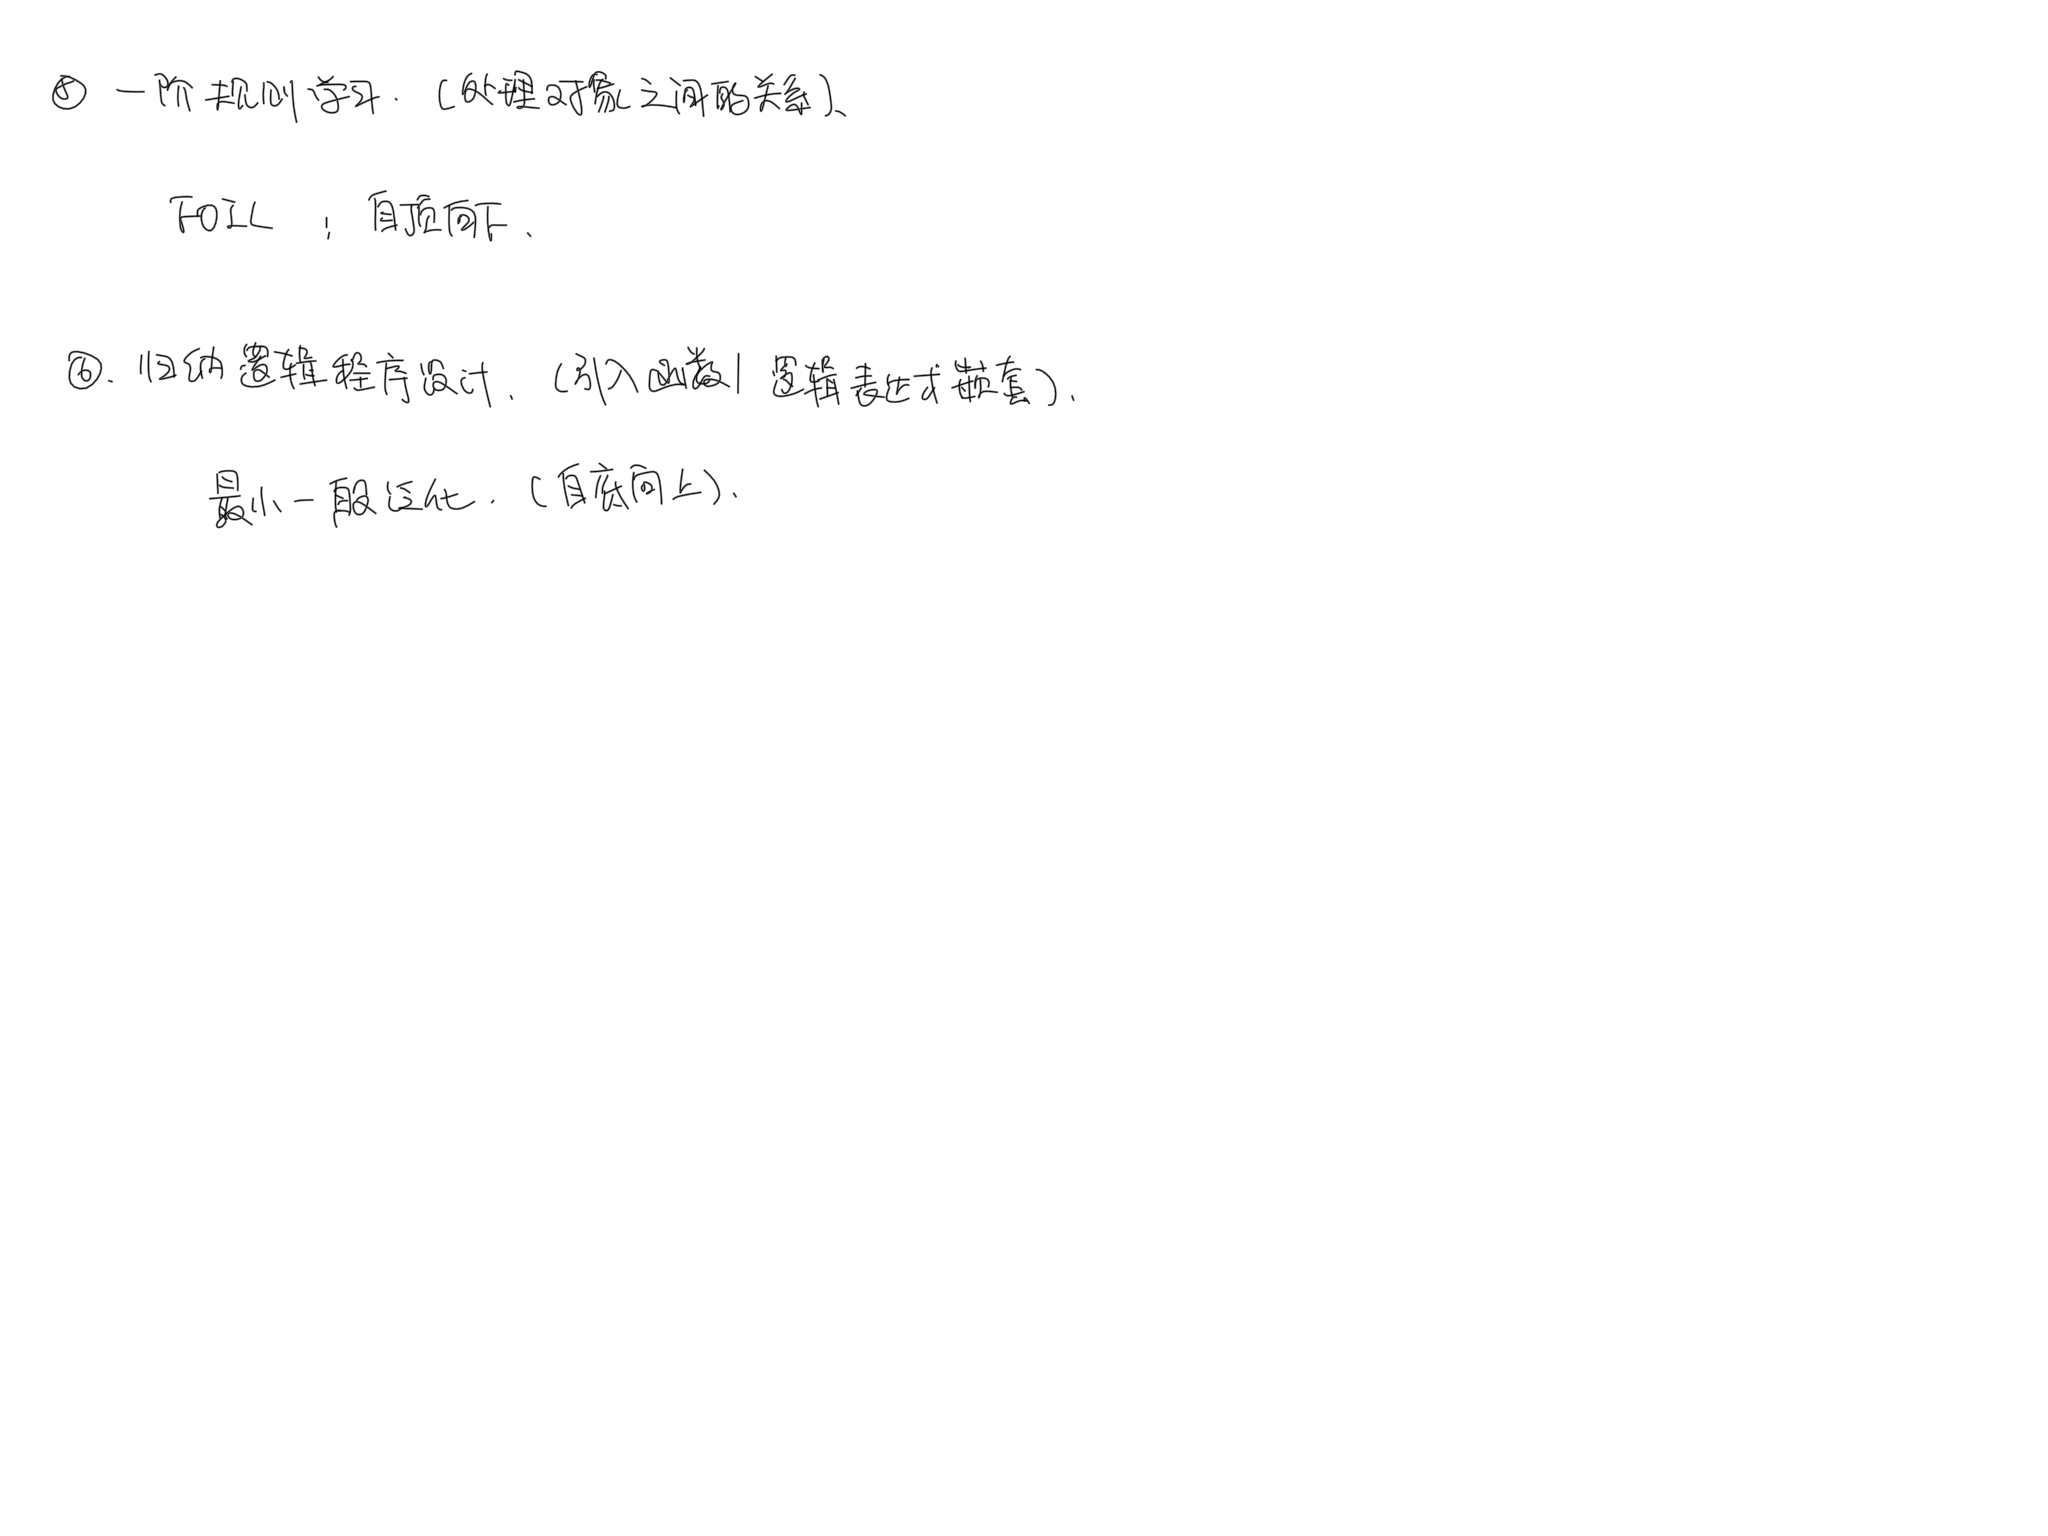 ⑤ 一阶规则学习.（处理对象之间的关系）、
FOIL ; 自顶向下、
⑥. 归纳逻辑程序设计.（引入函数| 逻辑表达式嵌套）.
最小一般泛化.（自底向上）.